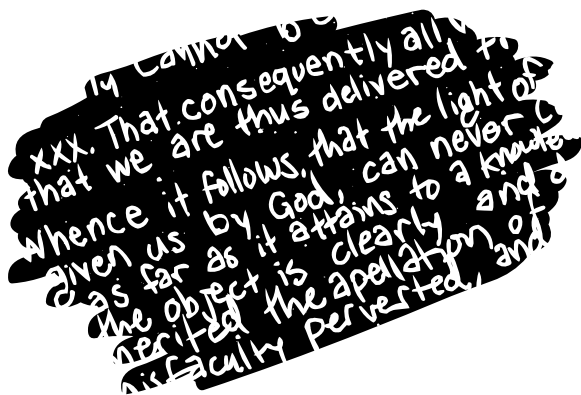 ly cannot be
xxx. That consequently all
that we are thus delivered
Whence it follows, that the light of
given us by God, can never
as far as it attains to a knowle
the object is clearly and d
merited the apellation of
his faculty perverted, and